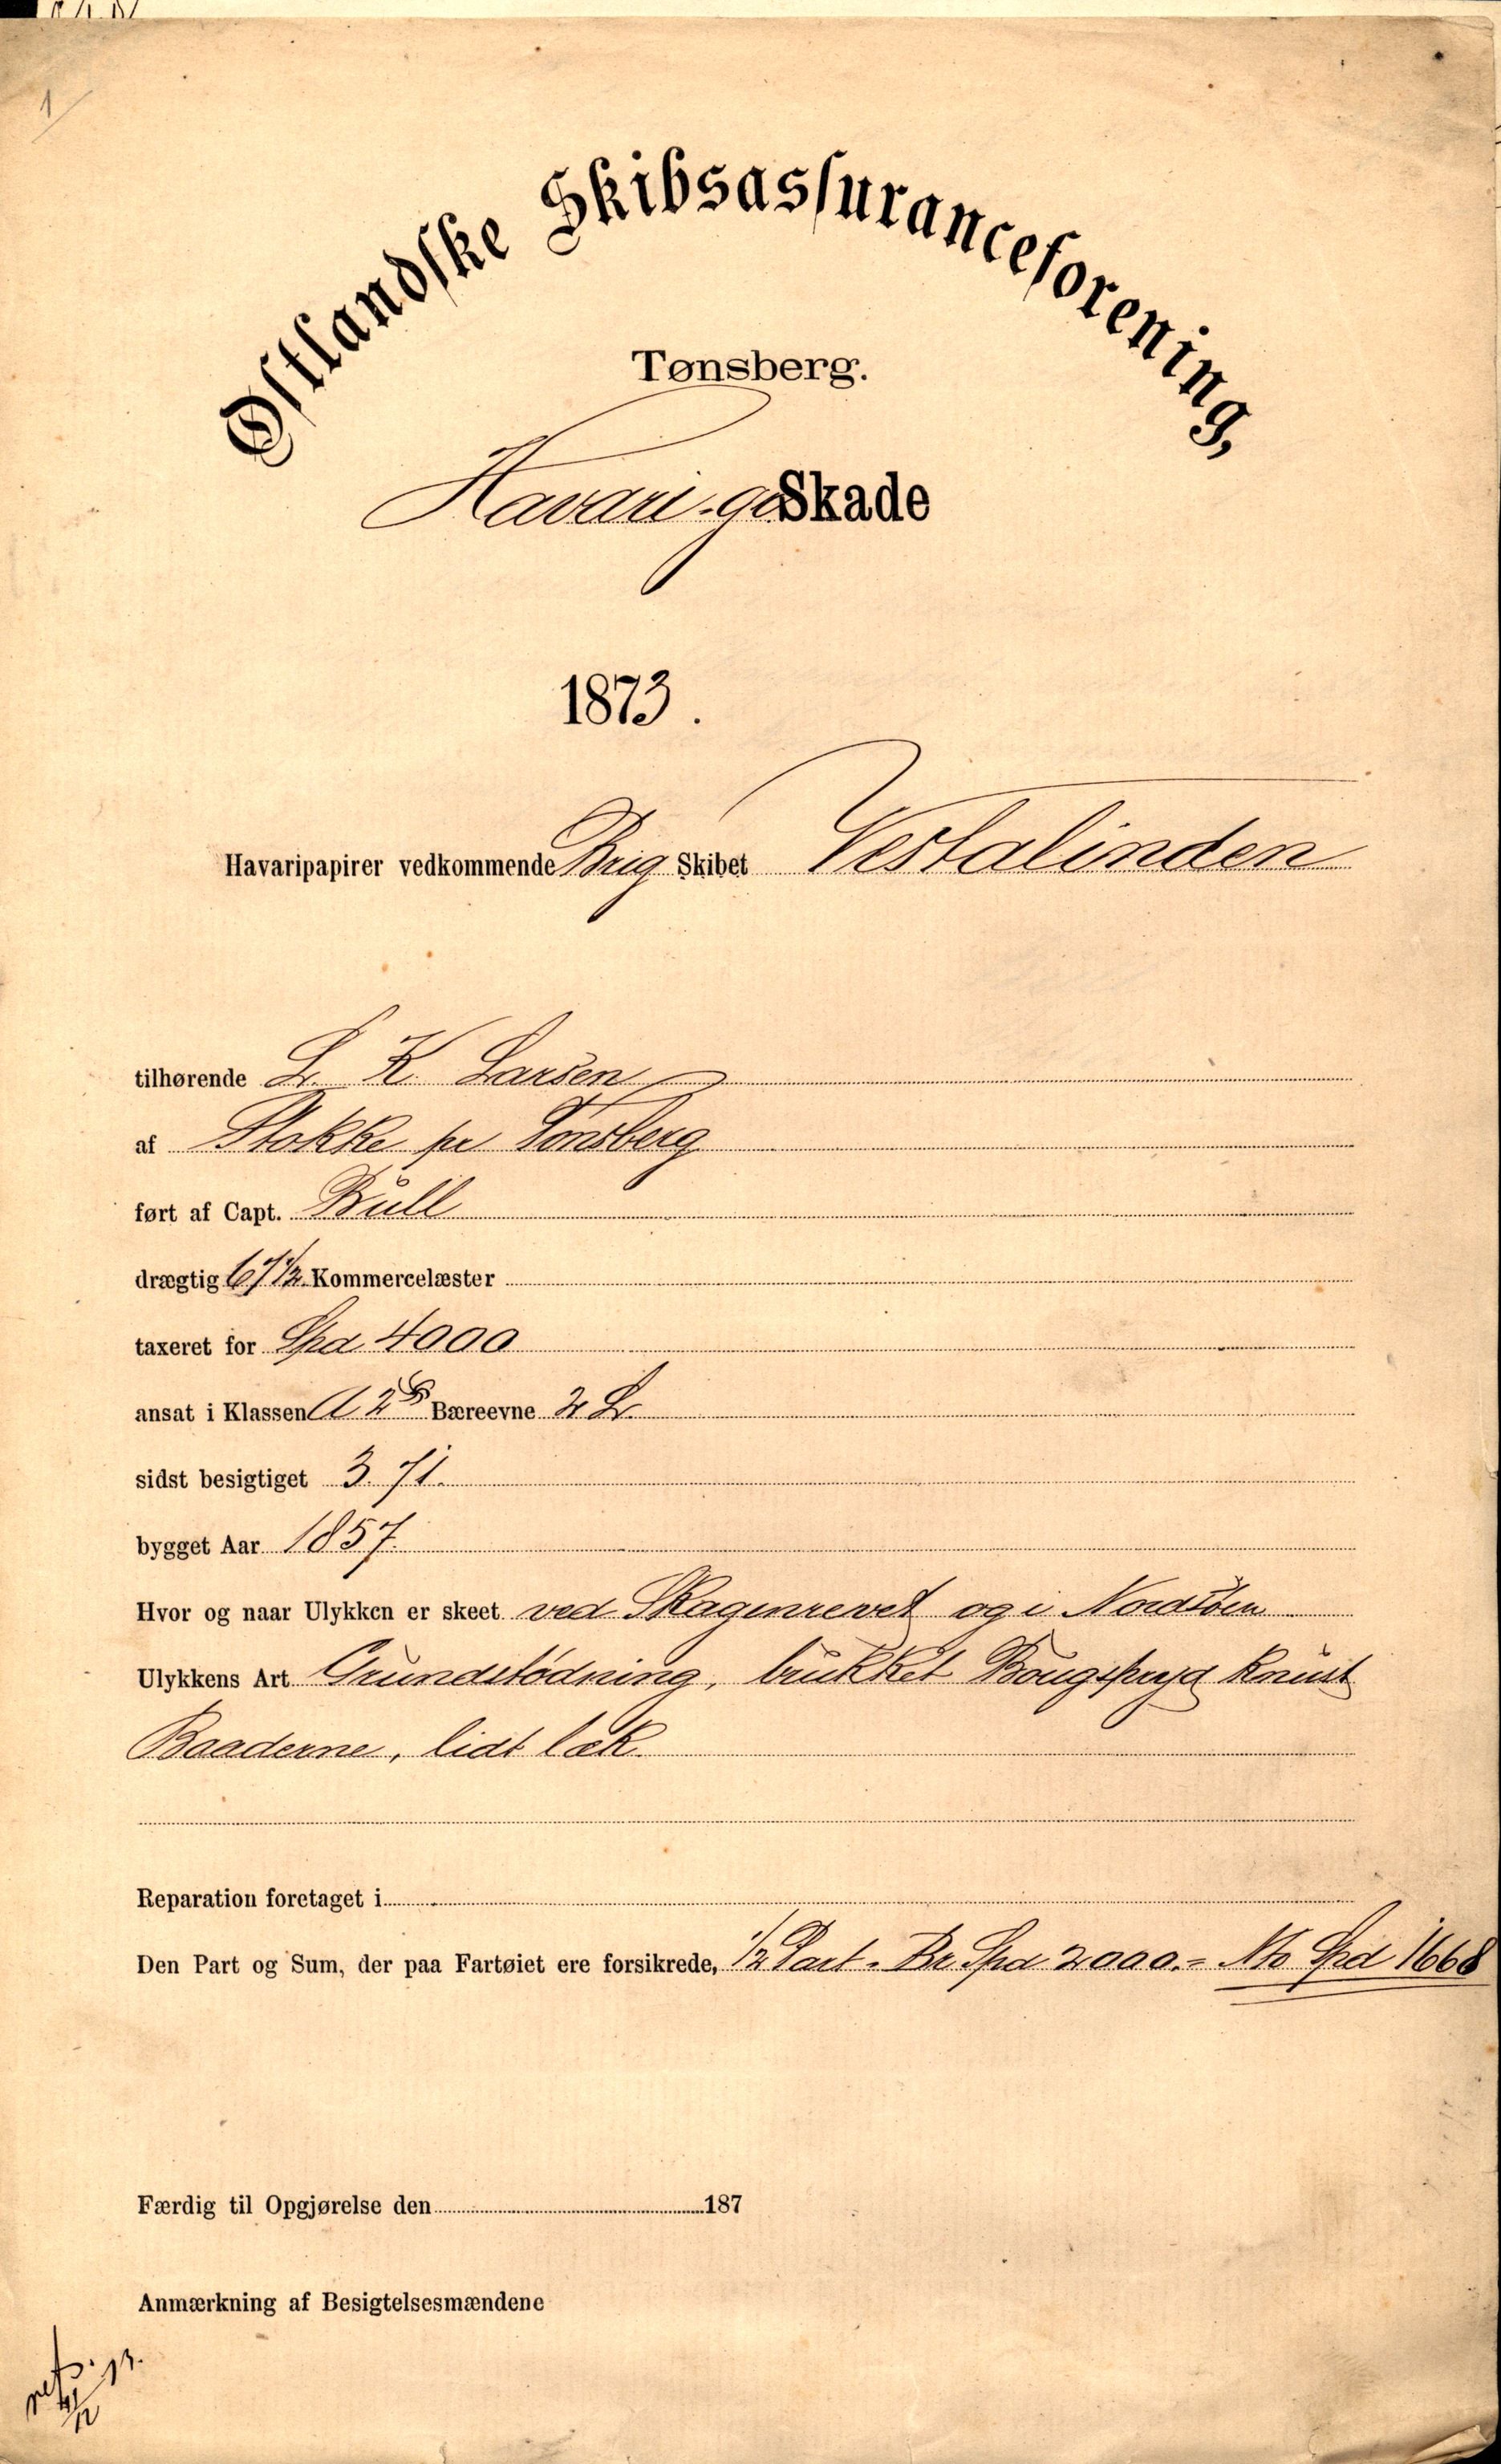 1
Østlandske Skibsassuranceforening,
Tønsberg.
Havari og Skade
1873.
Havaripapirer vedkommende Brig Skibet Vestalinden
tilhørende L. K. Larsen
af Stokke pr Tønsberg
ført af Capt. Bull
drægtig 67 1/2 Kommercelæster
taxeret for Spd 4000
ansat i Klassen A 2 Bæreevne 2 L.
sidst besigtiget 3. 71.
bygget Aar 1857.
Hvor og naar Ulykken er skeet ved Skagenrevet og i Nordsøen
Ulykkens Art Grundstødning, brukket Bougspryd knust
Baaderne, lidt læk.
Reparation foretaget i
Den Part og Sum, der paa Fartøiet ere forsikrede, 1/2 Part. Br. Spd 2000.= Nto Spd 1668
Færdig til Opgjørelse den 187
Anmærkning af Besigtelsesmændene